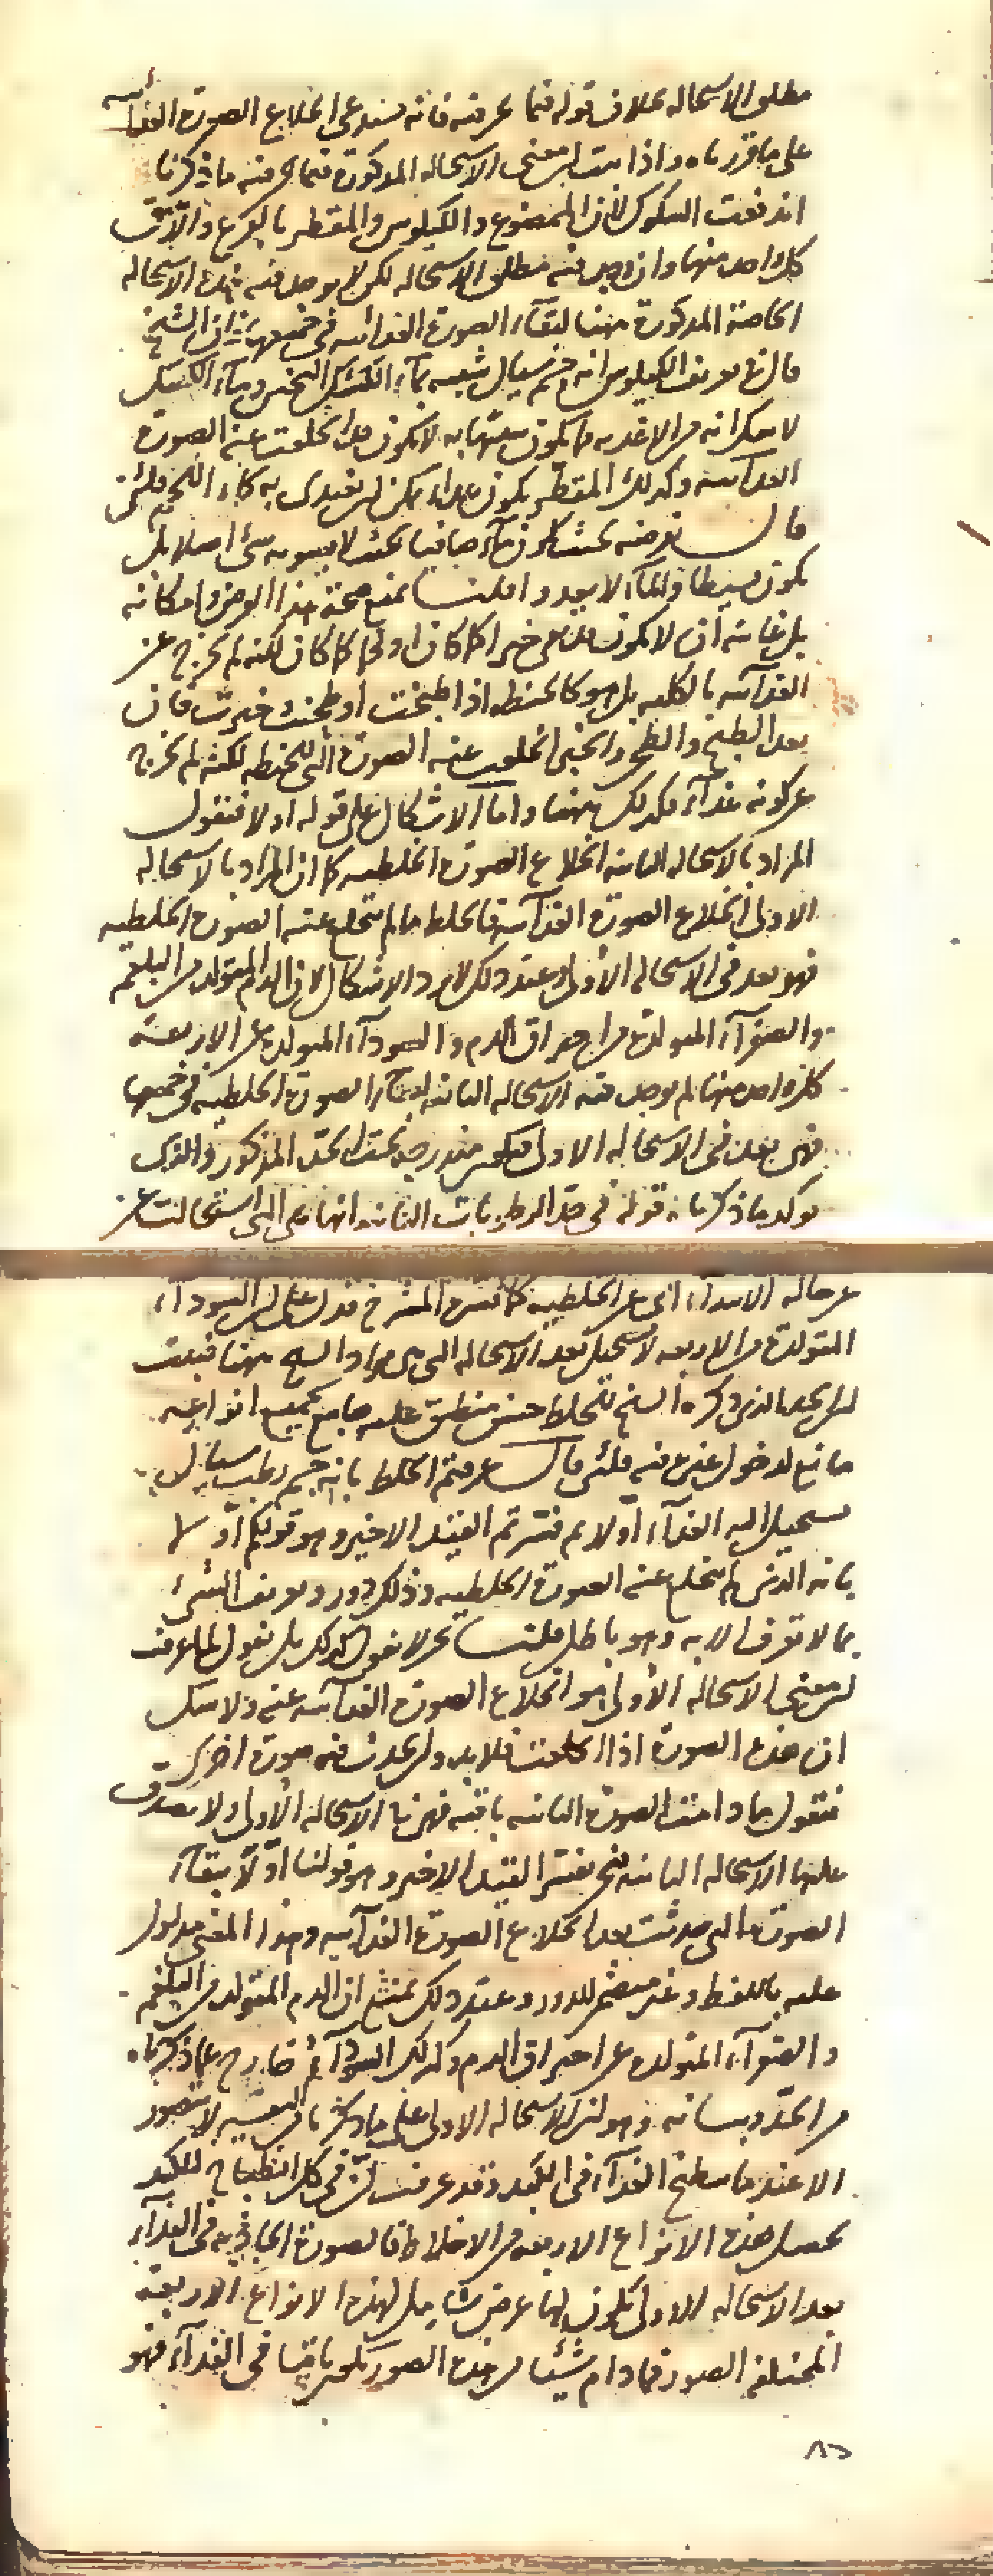 مطلق الاستحالة بخلاف قوله فيما عرفته فانه يستدعى انخلاع الصورة الغذائية
على ما قررناه واذا ثبت ان معنى الاستحالة المذكورة فيما عرفته ما ذكرنا
اندفعت الشكوك لان الممضوغ والكيلوس والمقطر بالقرع والانبيق
كل واحد منها وان وجد فيه مطلق الاستحالة لكن لا يوجد فيه هذه الاستحالة
الخاصة المذكورة ههنا لبقاء الصورة الغذائية فى جميعها فان الشيخ
قال فى تعريف الكيلوس انه جسم سيال شبيه بماء الكشك الثخين وماء الكشك
لا شك انه من الاغذية فما يكون شبيها به لا يكون قد انخلعت عنه الصورة
الغذائية وكذلك المقطر يكون غذاء يمكن ان يغتذى به كماء اللحم فلئن
قال نفرضه بحيث يكون ماء صافيا بحيث لا يشوبه شئ اصلا بل
يكون بسيطا والماء لا يغذو قلنا نمنع صحة هذا الفرض وامكانه
بل غايته ان لا يكون كما كان اولا لكنه لم يخرج عن
الغذائية بالكلية بل هو كالحنطة اذا طبخت او طحنت خبزت فان
بعد الطبخ والطحن والخبز انخلعت عنه الصورة التى للحنطة لكنه لم يخرج
عن كونه غذاء فكذلك ههنا واما الاشكال على قوله اولا فنقول
المراد بالاستحالة الثانية انخلاع الصورة الخلطية كما ان المراد بالاستحالة
الاولى انخلاع الصورة الغذائية فالخلط ما لم تنخلع عنه الصورة الخلطية
فهو بعد فى الاستحالة الاولى وعند ذلك لا يرد الاشكال لان الدم المتولد من البلغم
والصفراء المتولدة من احتراق الدم والسوداء المتولدة عن الاربعة
كل واحد منها لم يوجد فيه الاستحالة الثانية لبقاء الصورة الخلطية فى جميعها
فهى بعد فى الاستحالة الاولى فيكون مندرجة تحت الحد المذكور والذى
يؤكد ما ذكرناه قوله فى حد الرطوبات الثانية انها هى التى استحالت عن
عن حالة الابتداء اى عن الخلطية فدل على ان السوداء
المتولدة من الاربعة لا تستحيل بعد الاستحالة التى هى مراد الشيخ ههنا فثبت
ان الحد الذى ذكره الشيخ للخلط منطبق عليه جامع لجميع انواعه
مانع لدخول غيره فيه فلئن قال عرفتم الخلط بانه جسم رطب سيال
يستحيل اليه الغذاء اولا ثم فسرتم القيد الاخير وهو قولكم اولا
بانه الذى لم تنخلع عنه الصورة الخلطية وذلك دور وتعريف الشئ
بما لا تعرف الا به وهو باطل قلنا نحن لا نقول كذلك بل نقول لما عرفت
ان معنى الاستحالة الاولى هو انخلاع الصورة الغذائية عنه ولا شك
ان هذه الصورة اذا انخلعت فلا بد وان يحدث فيه صورة اخرى
فنقول ما دامت الصورة الثانية باقية فهى فى الاستحالة الاولى ولا يصدق
عليها الاستحالة الثانية فنحن نفسر القيد الاخير وهو قولنا اولا ببقاء
الصورة التى حدثت بعد انخلاع الصورة الغذائية وهذا المعنى مدلول
عليه باللفظ وغير متضمن للدور وعند ذلك يمتنع ان الدم المتولد من البلغم
والصفراء المتولدة عن احتراق الدم وكذلك السوداء خارج عما ذكرناه
من الحد وبيانه وهو ان الاستحالة الاولى على ما ذكرنا من التفسير لا يتصور
الا عند ما ينطبخ الغذاء فى الكبد وقد عرفت ان فى كل انطباخ للكبد
يحصل هذه الانواع الاربعة من الاخلاط فالصورة الحادثة فى الغذاء
بعد الاستحالة الاولى يكون لها عرض شامل لهذه الانواع الاربعة
المختلفة الصور فما دام شيئا من هذه الصور يكون باقيا فى الغذاء فهو
٨٥